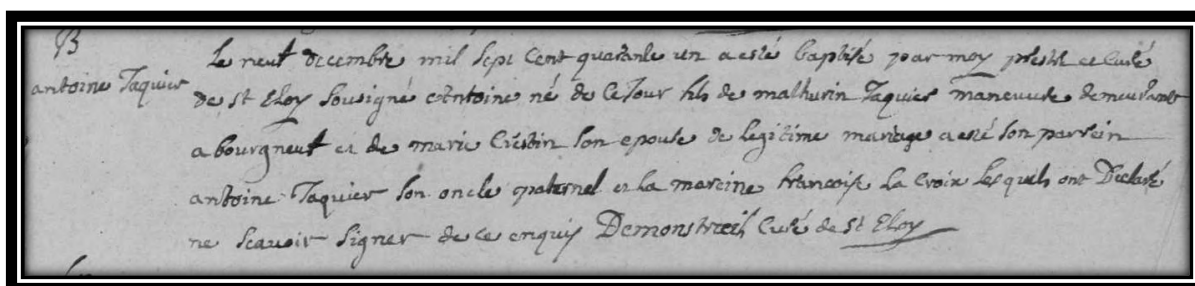 B
antoine Taquier
Le neuf decembre mil sept Cent quarante un a esté baptisé par moy prestre et Curé
de St Eloy Sousigné Antoine né de Ce Jour fils de mathurin Taquier maneuvre demeurant
a bourgneuf et de marie Crestin Son epouse de legitime mariage a esté Son parrein
antoine Taquier Son oncle paternel et la mareine francoise La Croix Lesquels ont Declaré
ne Scavoir Signer de ce enquis Demonstreil Curé de St Eloy